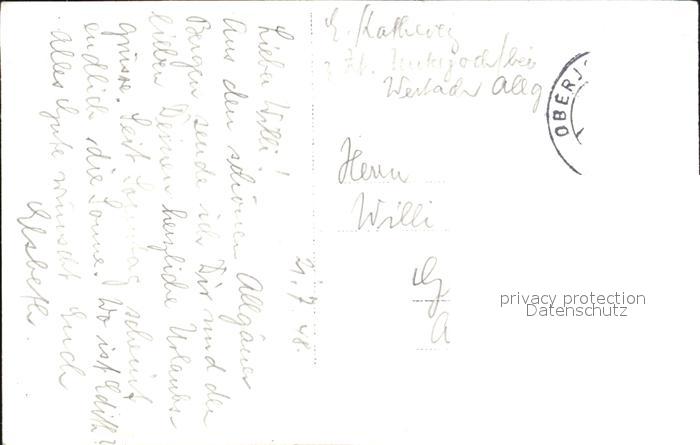 21.7.48.
Lieber Willi!
Aus den schönen Allgäuer
Bergen sende ich Dir und den
lieben Deinen herzliche Urlaubs-
grüsse. Seit Sonntag scheint
endlich die Sonne. Wo ist Edith?
Alles Gute wünscht Euch
Elsbeth.
E.
z. Zt. bei
Wertach Allg
OBERJ
Herrn
Willi
privacy protection
Datenschutz